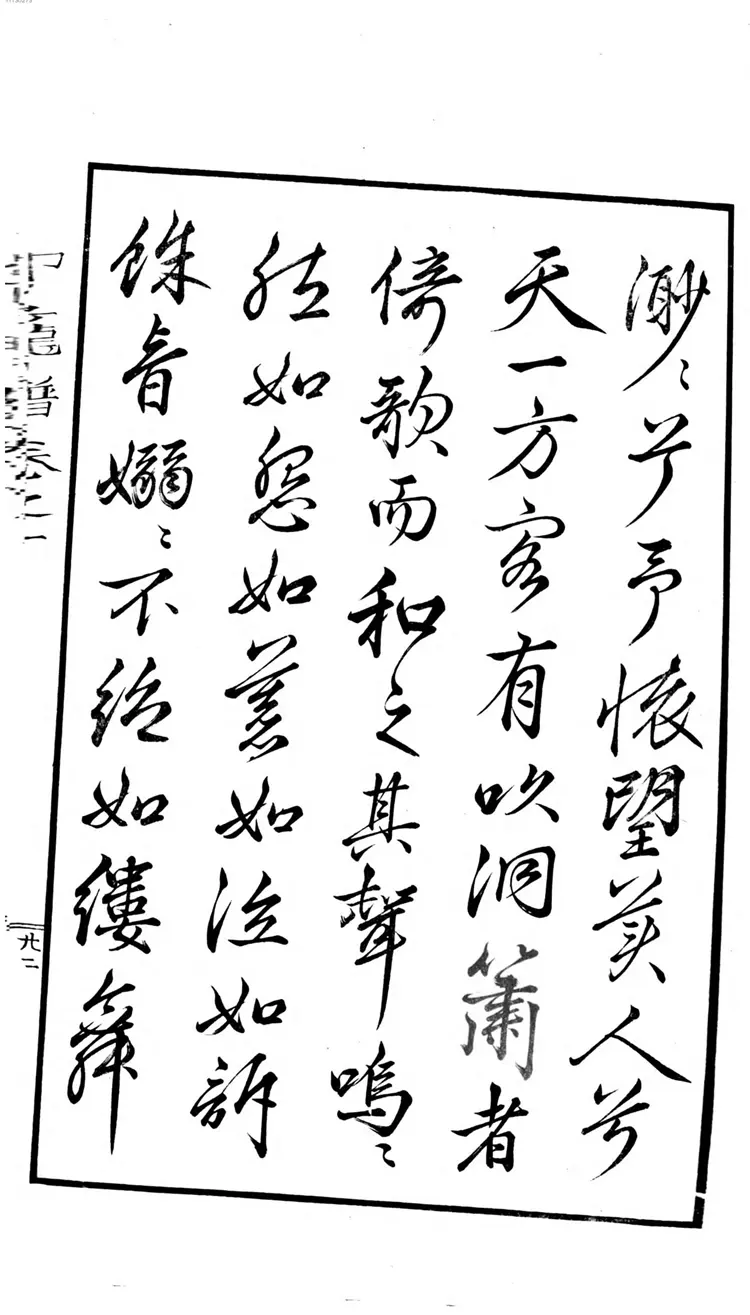 渺〻兮予懷望美人兮
天一方客有吹洞簫者
倚歌而和之其聲嗚〻
然如怨如慕如泣如訴
餘音嫋〻不絕如縷舞
譜卷之一
廿二